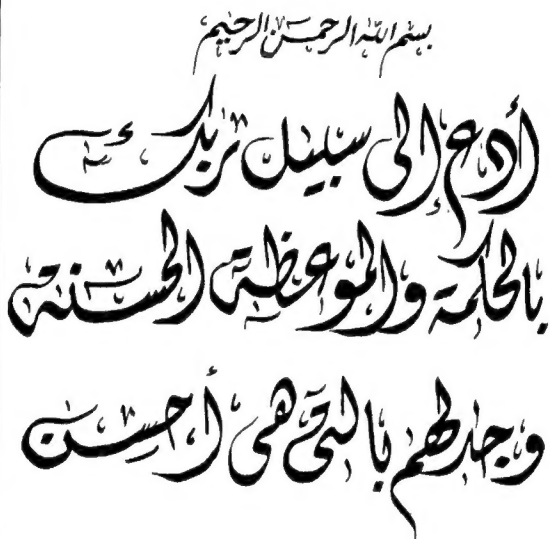 بسم الله الرحمن الرحيم
أدع إلى سبيل ربك
بالحكمة والموعظة الحسنة
وجدلهم بالتى هى أحسن